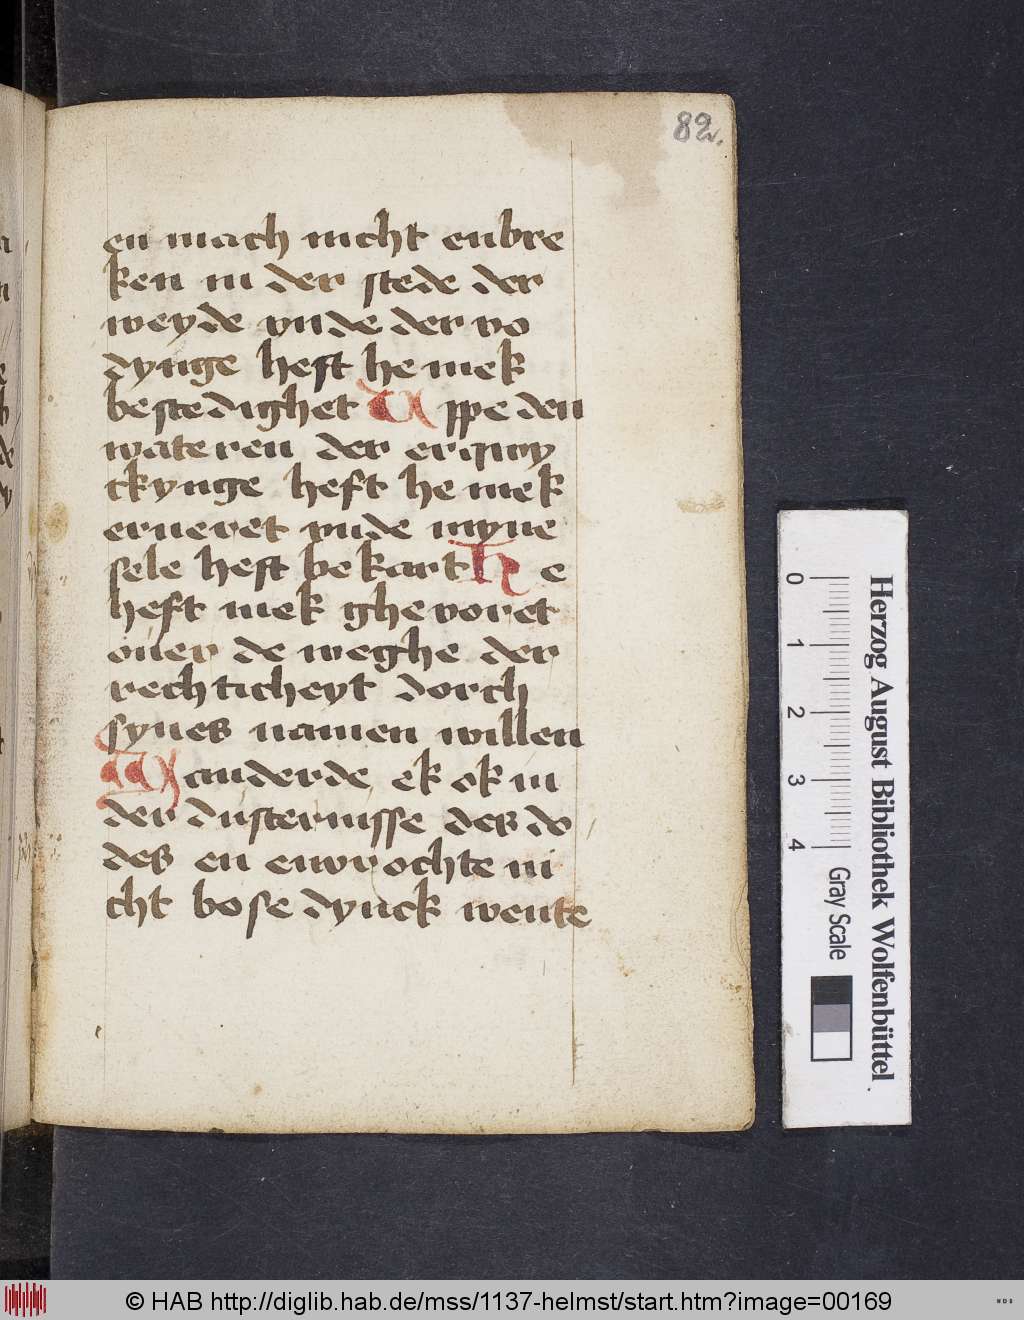 82.
en mach nicht enbre
ken in der stede der
weyde vnde der vo
dynge heft he mek
bestedighet Vppe den
wateren der erquy
ckynge heft he mek
erneret vnde myne
sele heft bekart He
heft mek ghevoret
ouer de weghe der
rechticheyt dorch
synes namen willen
Wanderde ek ok in
der dusternisse des do
des en envrochte ni
cht bose dynck wente
Herzog August Bibliothek Wolfenbüttel
0 1 2 3 4
Gray Scale
© HAB http://diglib.hab.de/mss/1137-helmst/start.htm?image=00169